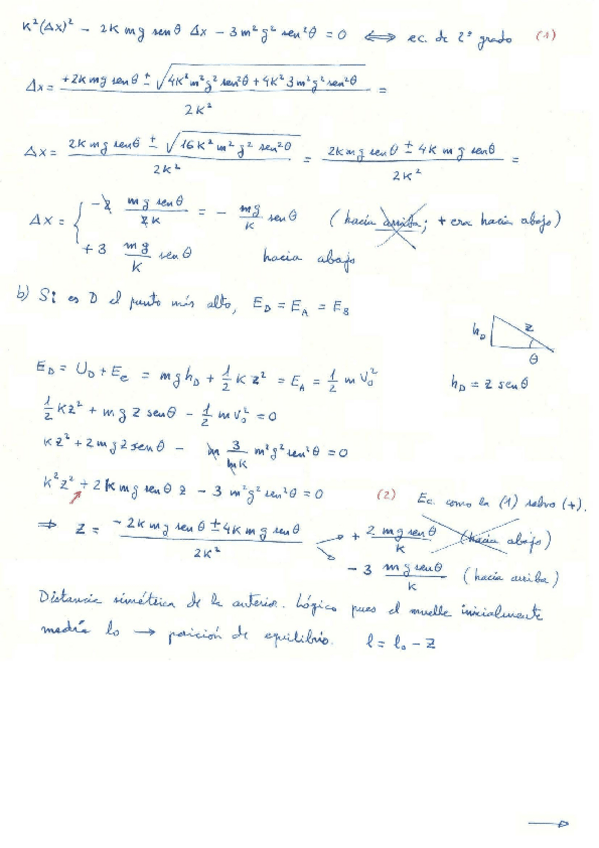 K²(Δx)² - 2K mg senθ Δx - 3m²g² sen²θ = 0 ⟺ ec. de 2º grado (1)
Δx = +2K mg senθ ± √(4K²m²g² sen²θ + 4K² 3m²g² sen²θ) / 2K² =
Δx = 2K mg senθ ± √(16K²m²g² sen²θ) / 2K² = 2K mg senθ ± 4K mg senθ / 2K² =
Δx = { -2 mg senθ / 2K = - mg/K senθ (hacia arriba; + era hacia abajo)
+3 mg/K senθ hacia abajo
b) Si es D el punto más alto, E_D = E_A = E_B
h_D z θ
E_D = U_D + E_e = mg h_D + 1/2 K z² = E_A = 1/2 m V₀²
h_D = z senθ
1/2 K z² + m g z senθ - 1/2 m V₀² = 0
K z² + 2 m g z senθ - m 3/mK m²g² sen²θ = 0
K² z² + 2K mg senθ z - 3 m²g² sen²θ = 0 (2) Ec. como la (1) salvo (+).
⇒ z = -2K mg senθ ± 4K mg senθ / 2K² → + 2 mg senθ / K (hacia abajo)
→ - 3 mg senθ / K (hacia arriba)
Distancia simétrica de la anterior. Lógico pues el muelle inicialmente
medía l₀ → posición de equilibrio. l = l₀ - z
→